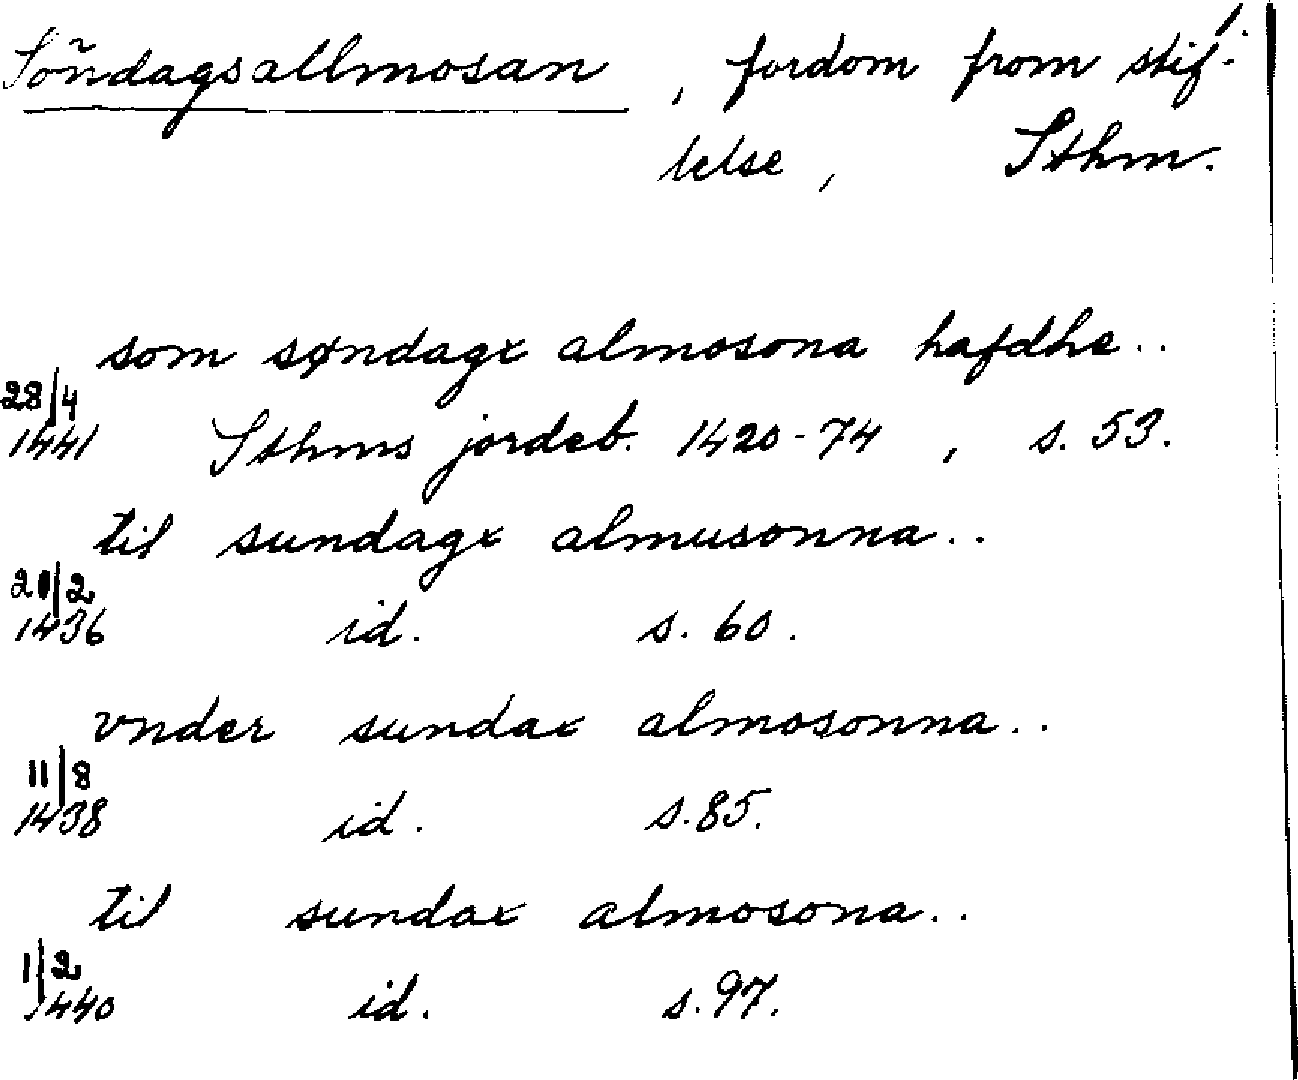 Söndagsallmosan, fordom from stif-
telse, Sthm.
som søndagx almosona hafdhe..
28/4
1441 Sthms jordeb. 1420-74, s. 53.
til sundagx almusonna..
1436 id. s. 60.
vnder sundax almosonna..
11/8
1438 id. s. 85.
til sundax almosona..
1/2
1440 id. s. 97.